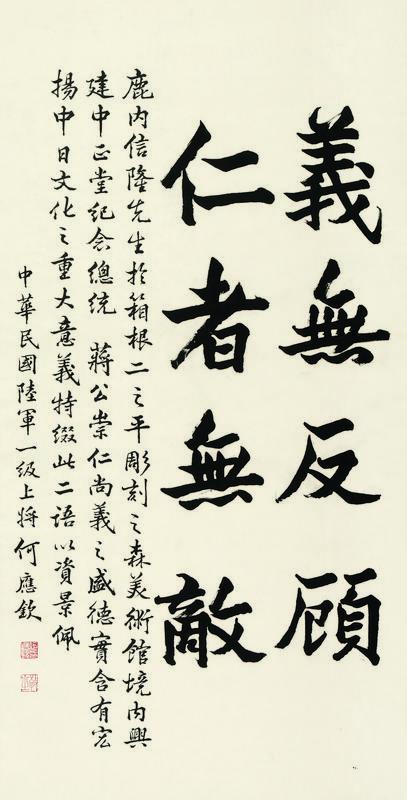 義無反顧
仁者無敵
鹿內信隆先生於箱根二之平彫刻之森美術館境內興
建中正堂紀念總統 蔣公崇仁尚義之盛德實含有宏
揚中日文化之重大意義特綴此二語以資景佩
中華民國陸軍一級上將何應欽